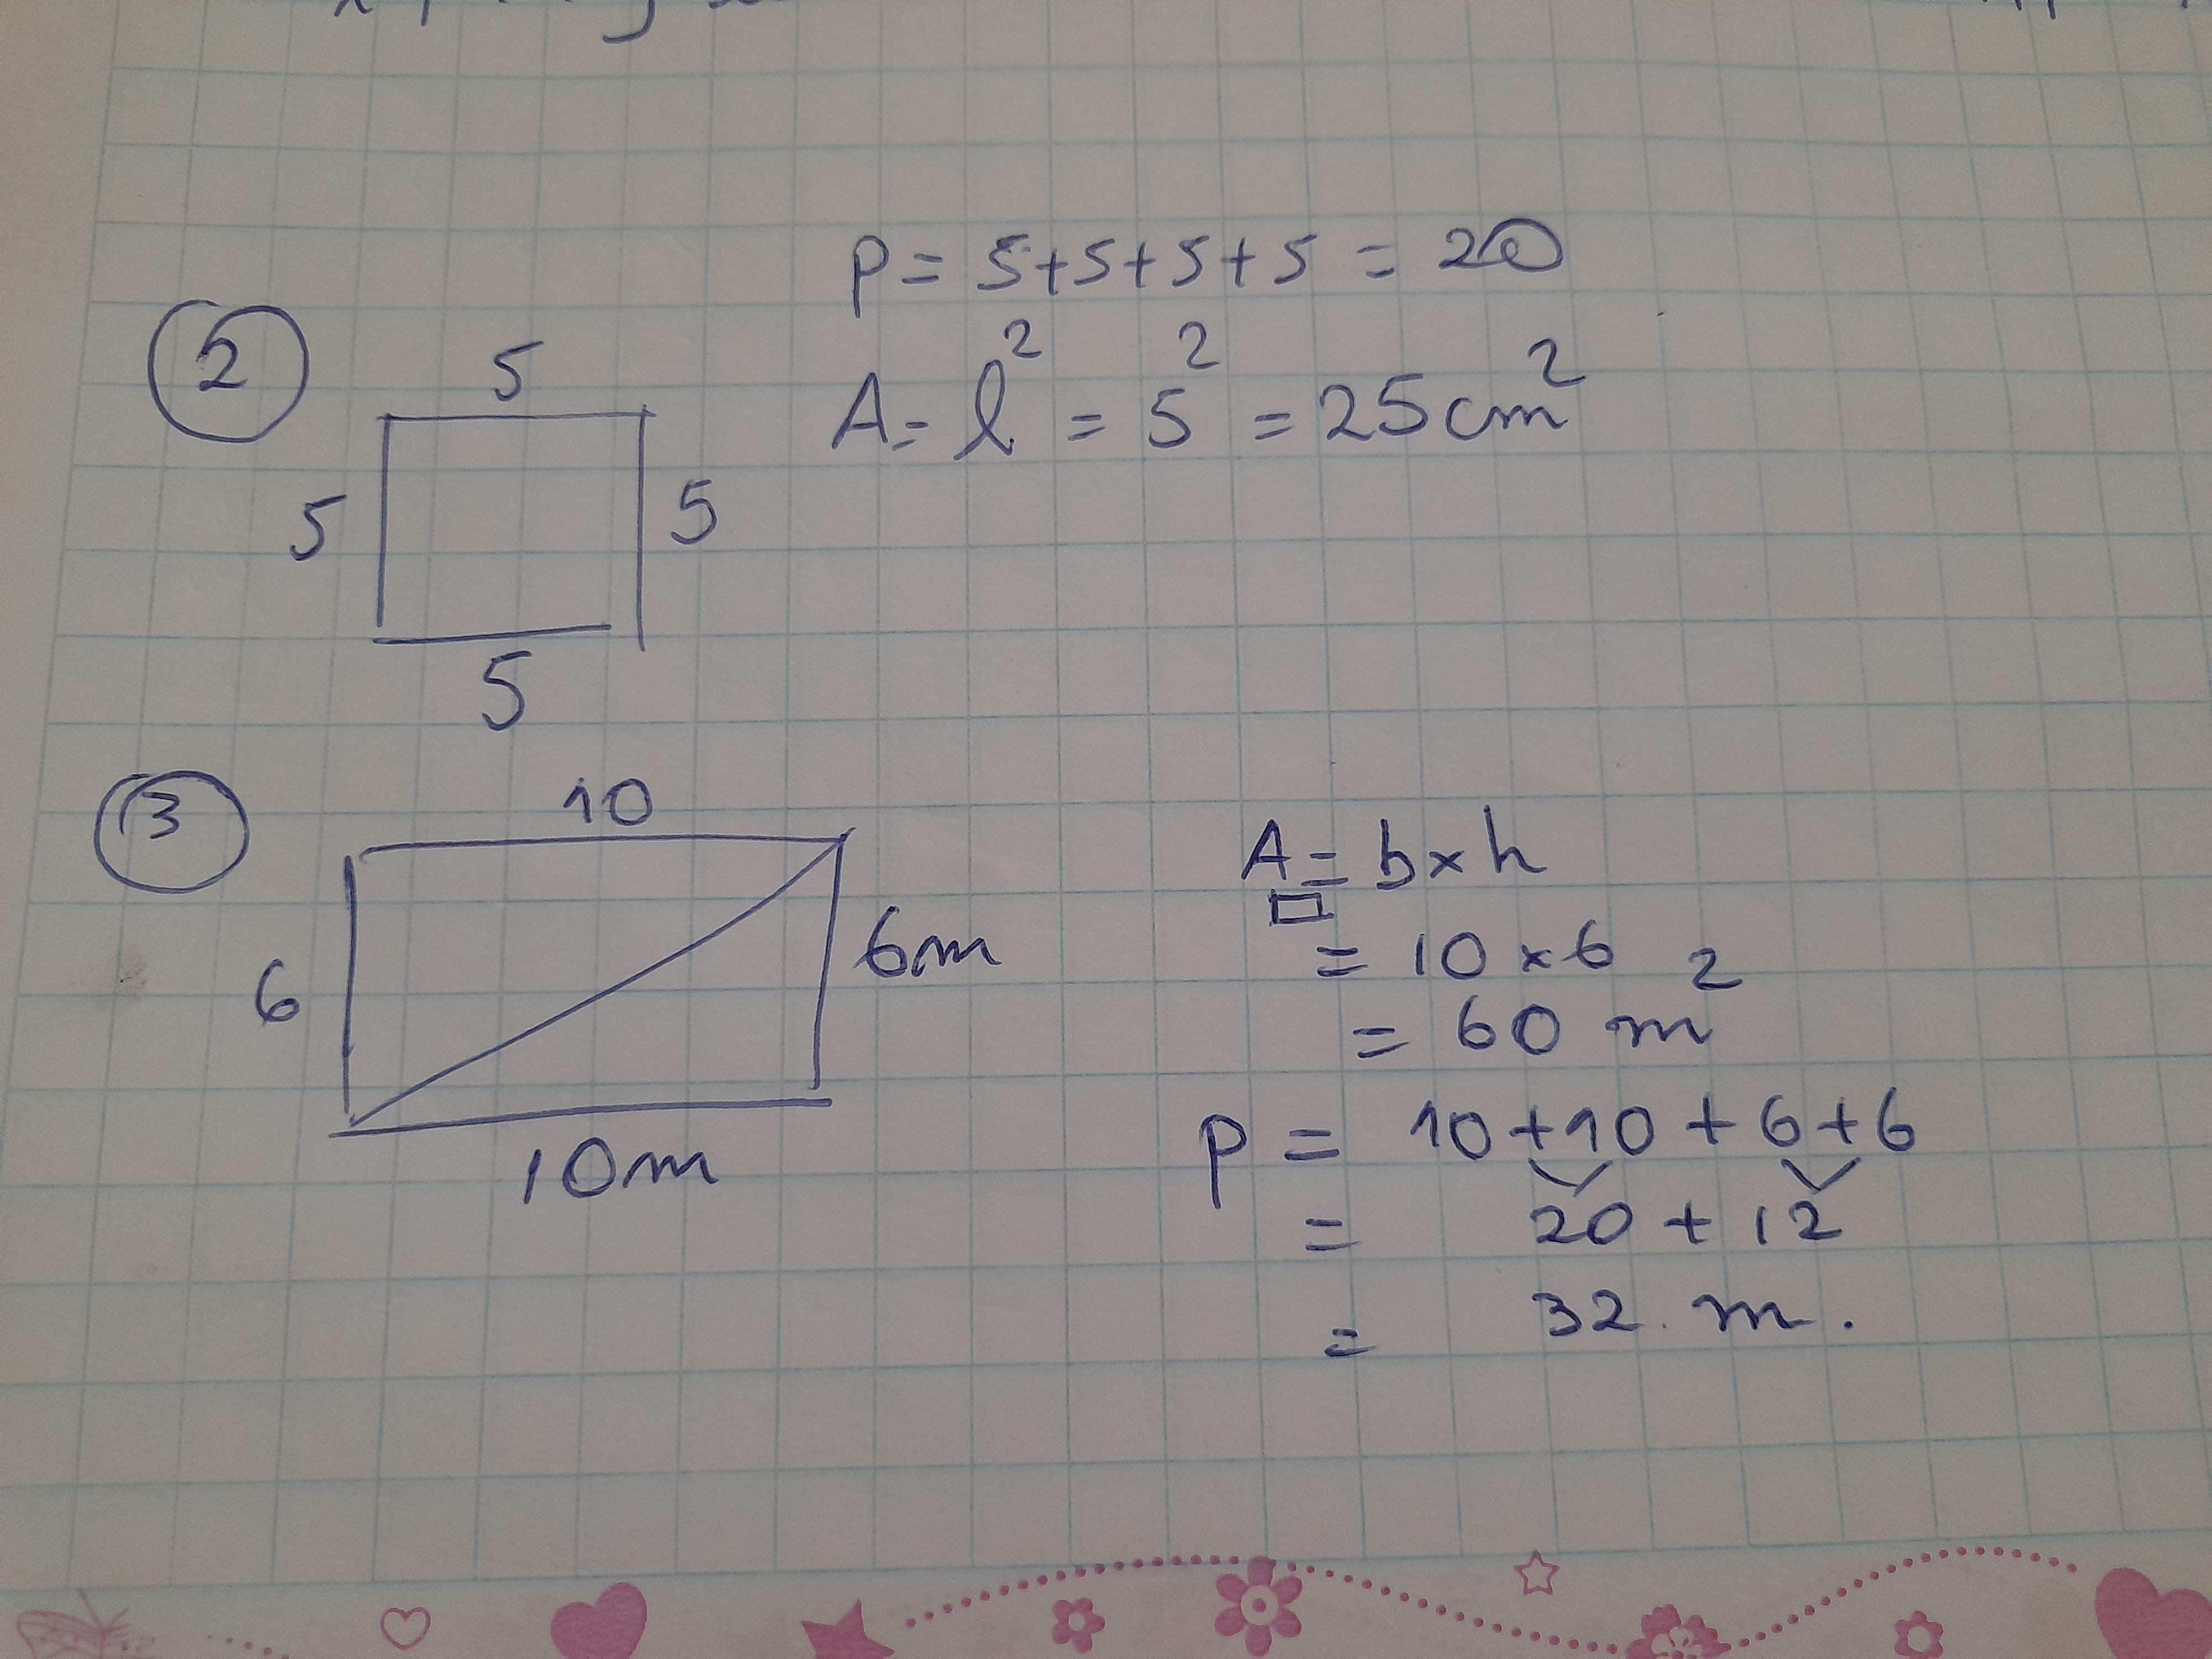 P = 5+5+5+5 = 20
2
5
A = l² = 5² = 25cm²
5
5
5
3
10
A = b x h
6m
= 10 x 6
6
= 60 m²
P = 10 + 10 + 6 + 6
10m
= 20 + 12
= 32 m.